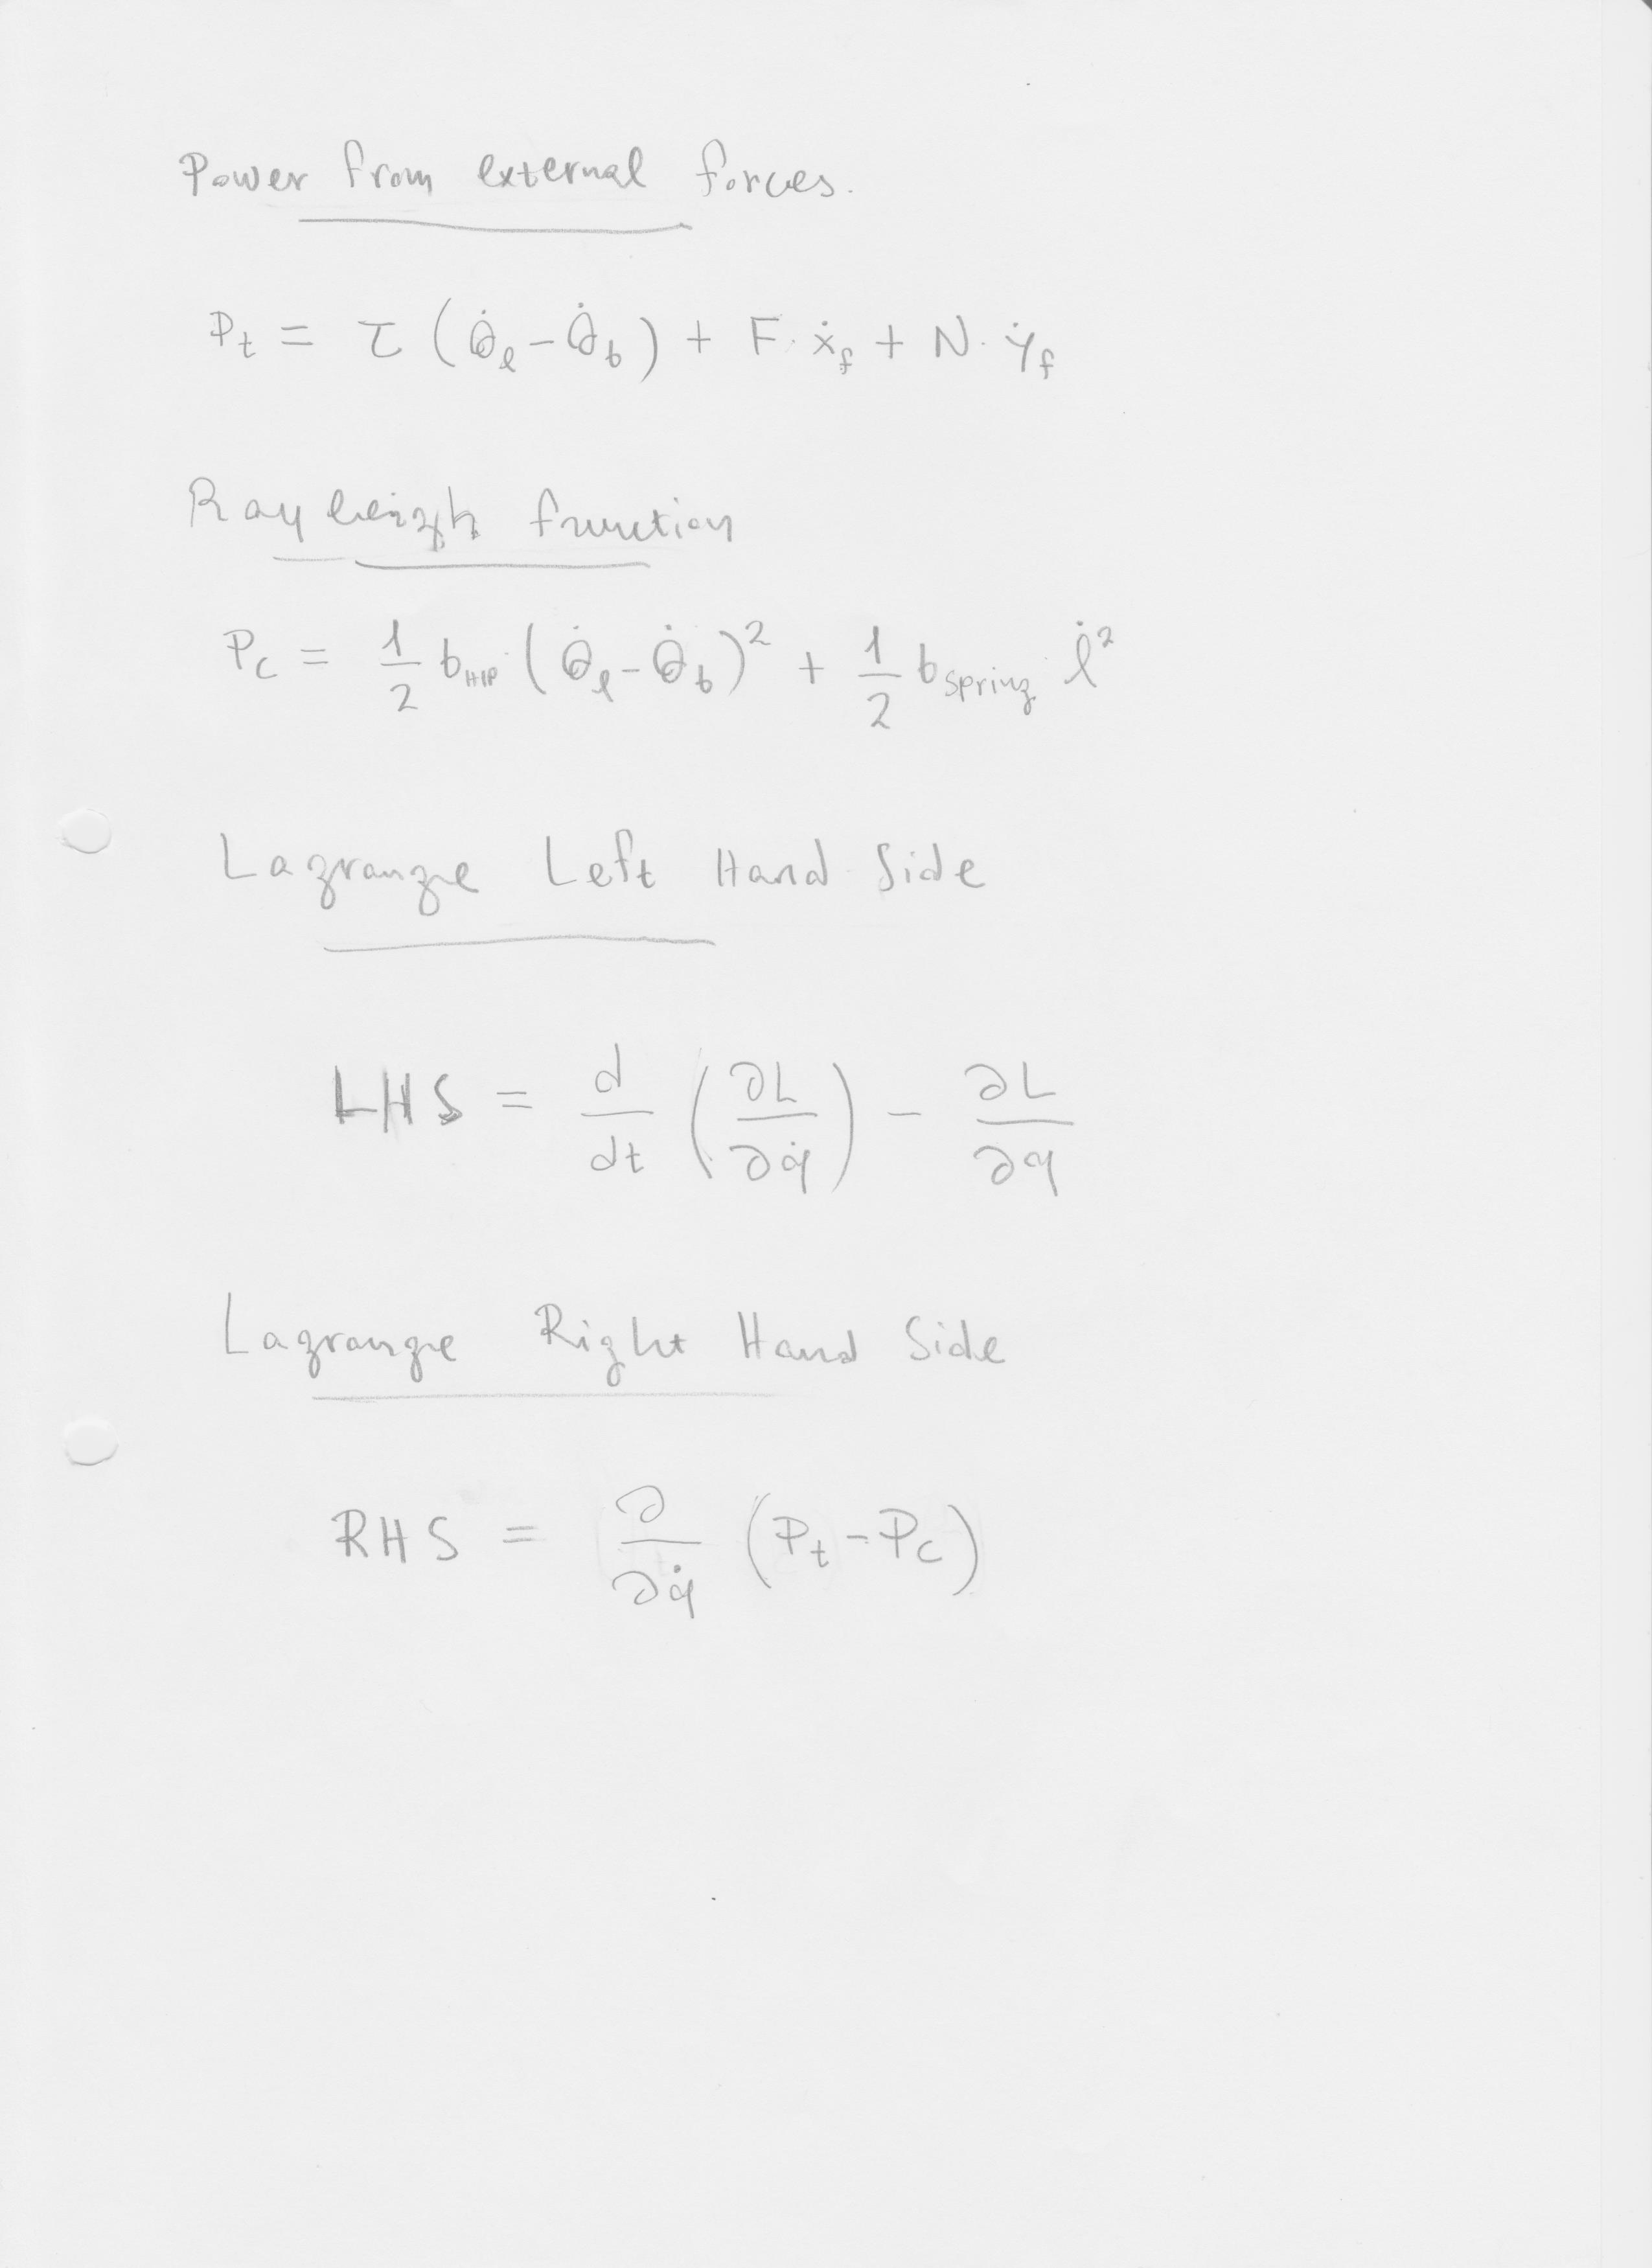 Power from external forces.
P_t = τ (θ̇_l - θ̇_b) + F · ẋ_f + N · ẏ_f
Rayleigh function
P_c = 1/2 b_HIP (θ̇_l - θ̇_b)² + 1/2 b_spring l̇²
Lagrange Left Hand Side
LHS = d/dt (∂L/∂q̇) - ∂L/∂q
Lagrange Right Hand Side
RHS = ∂/∂q̇ (P_t - P_c)